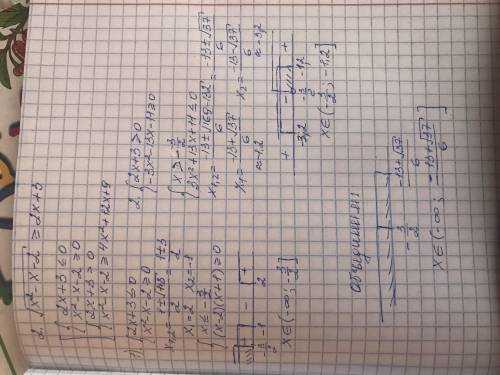 2. √(x²-x-2) ≥ 2x+3
{ 2x+3 ≤ 0
x²-x-2 ≥ 0
{ 2x+3 > 0
x²-x-2 ≥ 4x²+12x+9
1) { 2x+3 ≤ 0
x²-x-2 ≥ 0
x₁,₂ = (1±√(1+8))/2 = (1±3)/2
x₁=2 x₂=-1
{ x ≤ -3/2
(x-2)(x+1) ≥ 0
+ - +
-3/2 -1 2
x∈(-∞; -3/2]
2. { 2x+3>0
-3x²-13x-11≥0
{ x > -3/2
3x²+13x+11 ≤ 0
x₁,₂ = (-13±√(169-132))/6 = (-13±√37)/6
x₁ = (-13+√37)/6 x₂ = (-13-√37)/6
≈-1,2 ≈-3,2
+ - +
-3,2 -3/2 -1,2
x∈(-3/2; -1,2]
Объединим
-3/2 (-13+√37)/6
x∈(-∞; (-13+√37)/6]